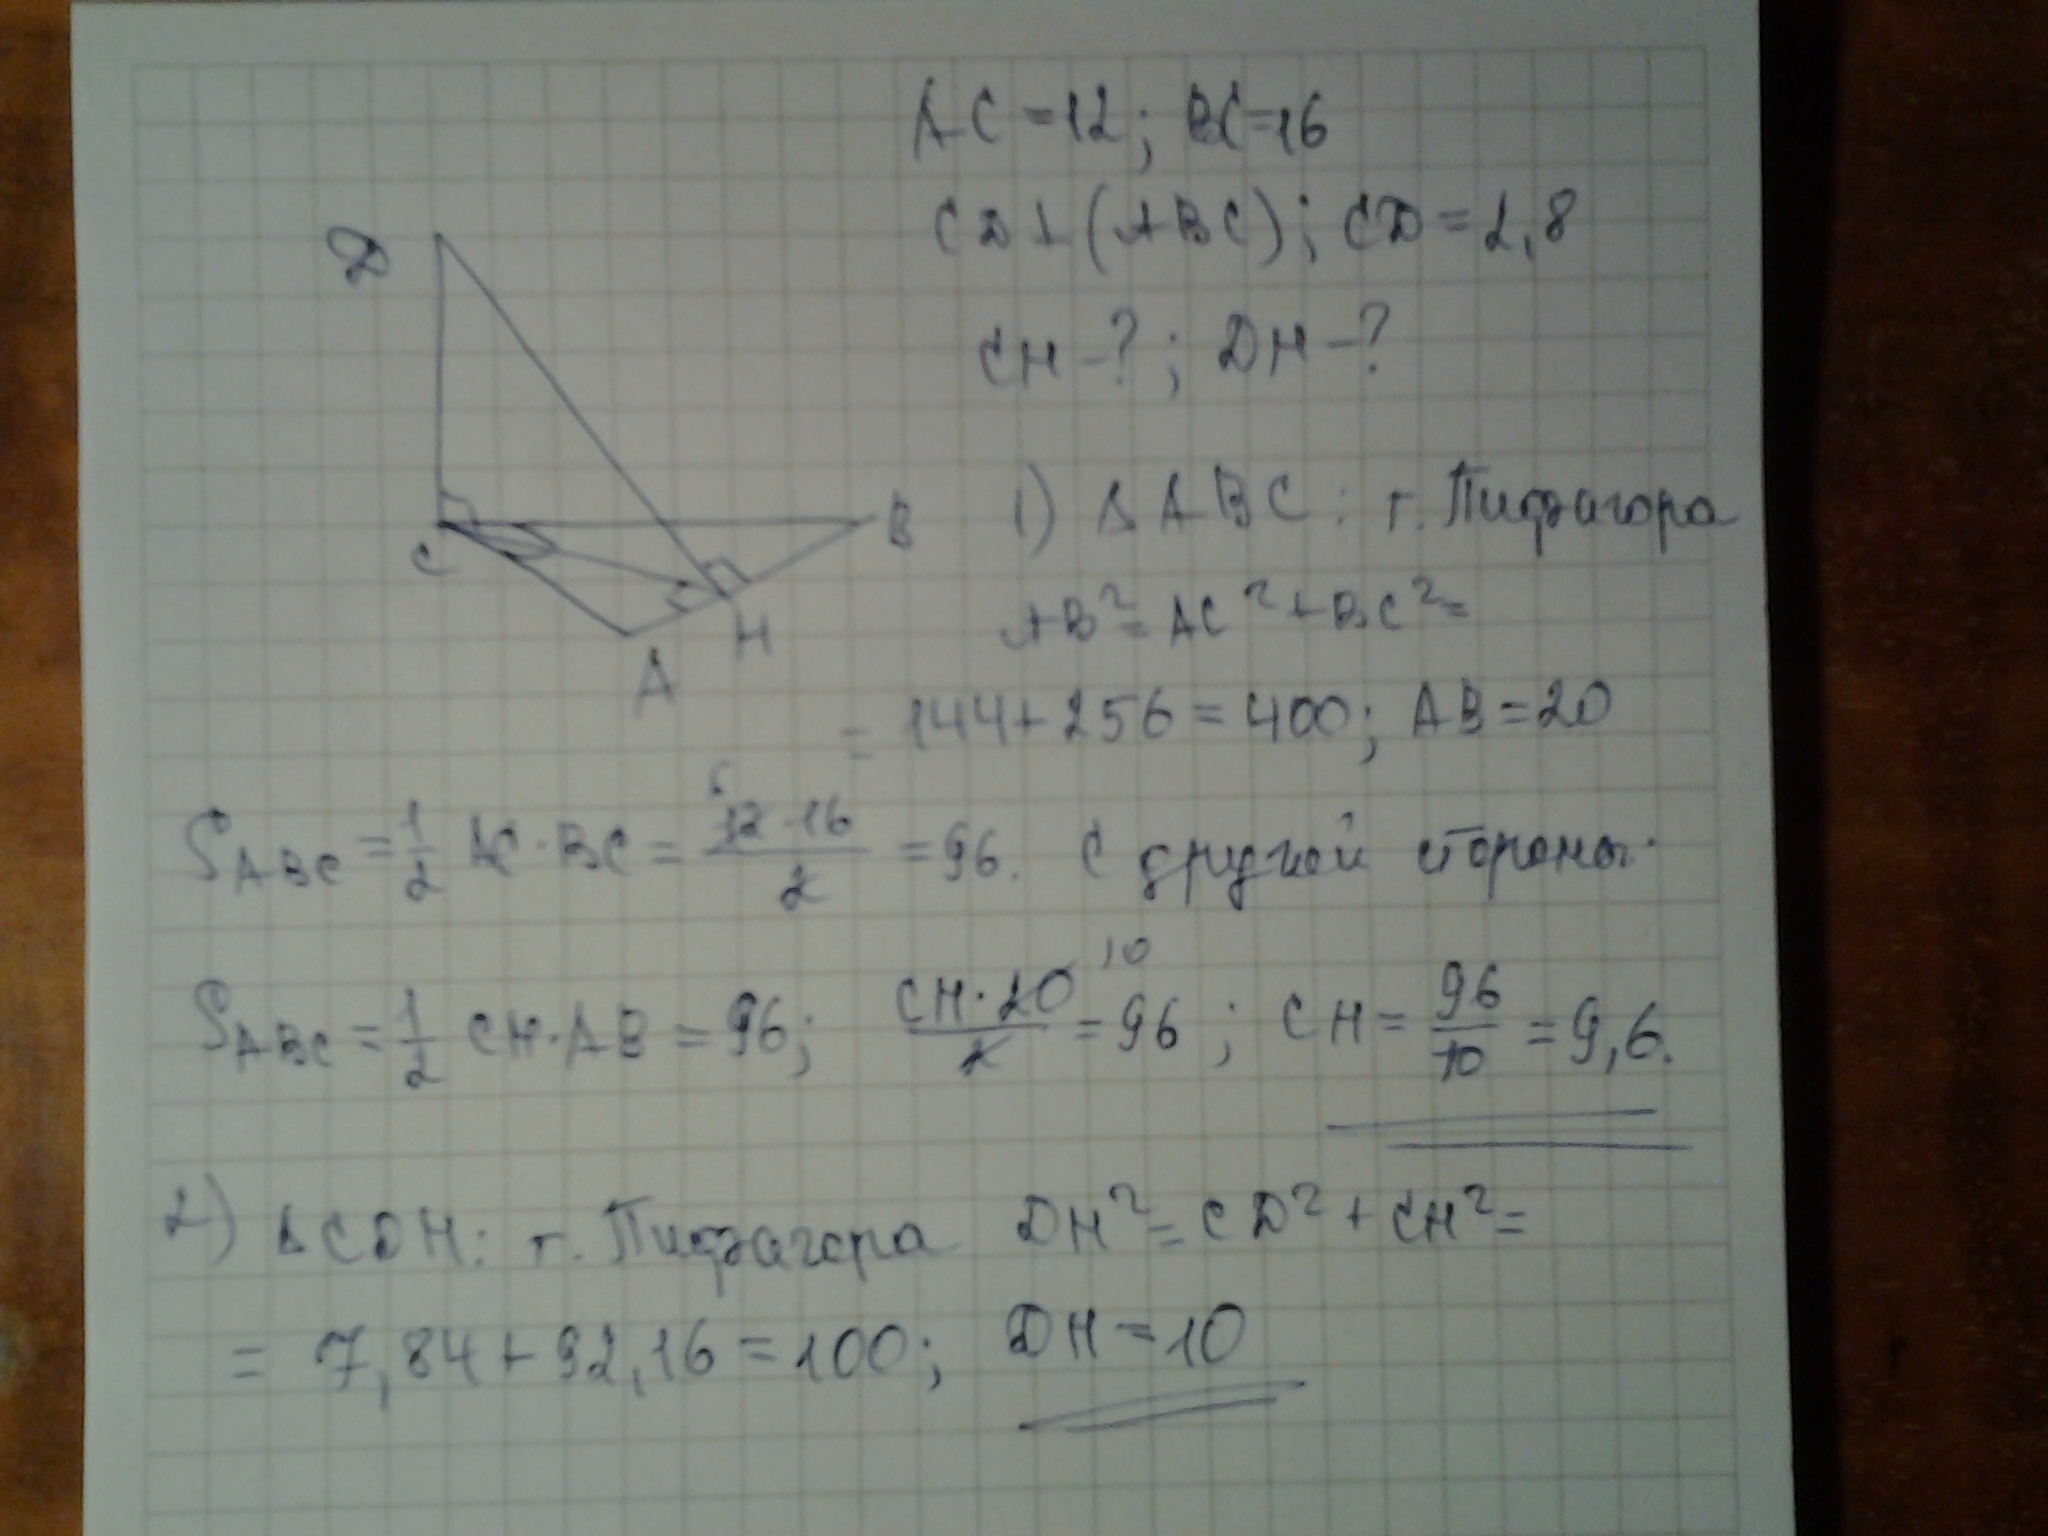 AC = 12; BC = 16
CD ⊥ (ABC); CD = 2,8
CH - ?; DH - ?
D
C
B
A
H
1) Δ ABC: т. Пифагора
AB² = AC² + BC² =
= 144 + 256 = 400; AB = 20
S_ABC = 1/2 AC · BC = 12 · 16 / 2 = 96. С другой стороны:
6
S_ABC = 1/2 CH · AB = 96; CH · 20 / 2 = 96; CH = 96/10 = 9,6.
10
2) Δ CDH: т. Пифагора DH² = CD² + CH² =
= 7,84 + 92,16 = 100; DH = 10